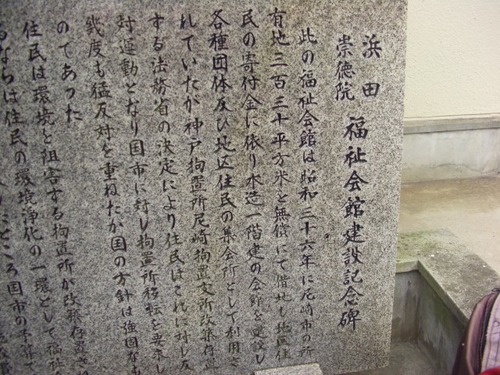 浜田
崇徳院
福祉会館建設記念碑
此の福祉会館は昭和三十六年に尼崎市の所
有地三百三十平方米を無償にて借地し地区住
民の寄付金に依り木造二階建の会館を建設し
各種団体及び地区住民の集会所として利用さ
れていたが神戸拘置所尼崎拘置支所改築存置
する法務省の決定により住民はこれに対し反
対運動となり国市に対し拘置所移転を要求し
幾度も猛反対を重ねたが国の方針は強固なも
のであった
住民は環境を阻害する拘置所が改築存置さ
るならば住民の環境浄化の一環として福祉
ところ国市の